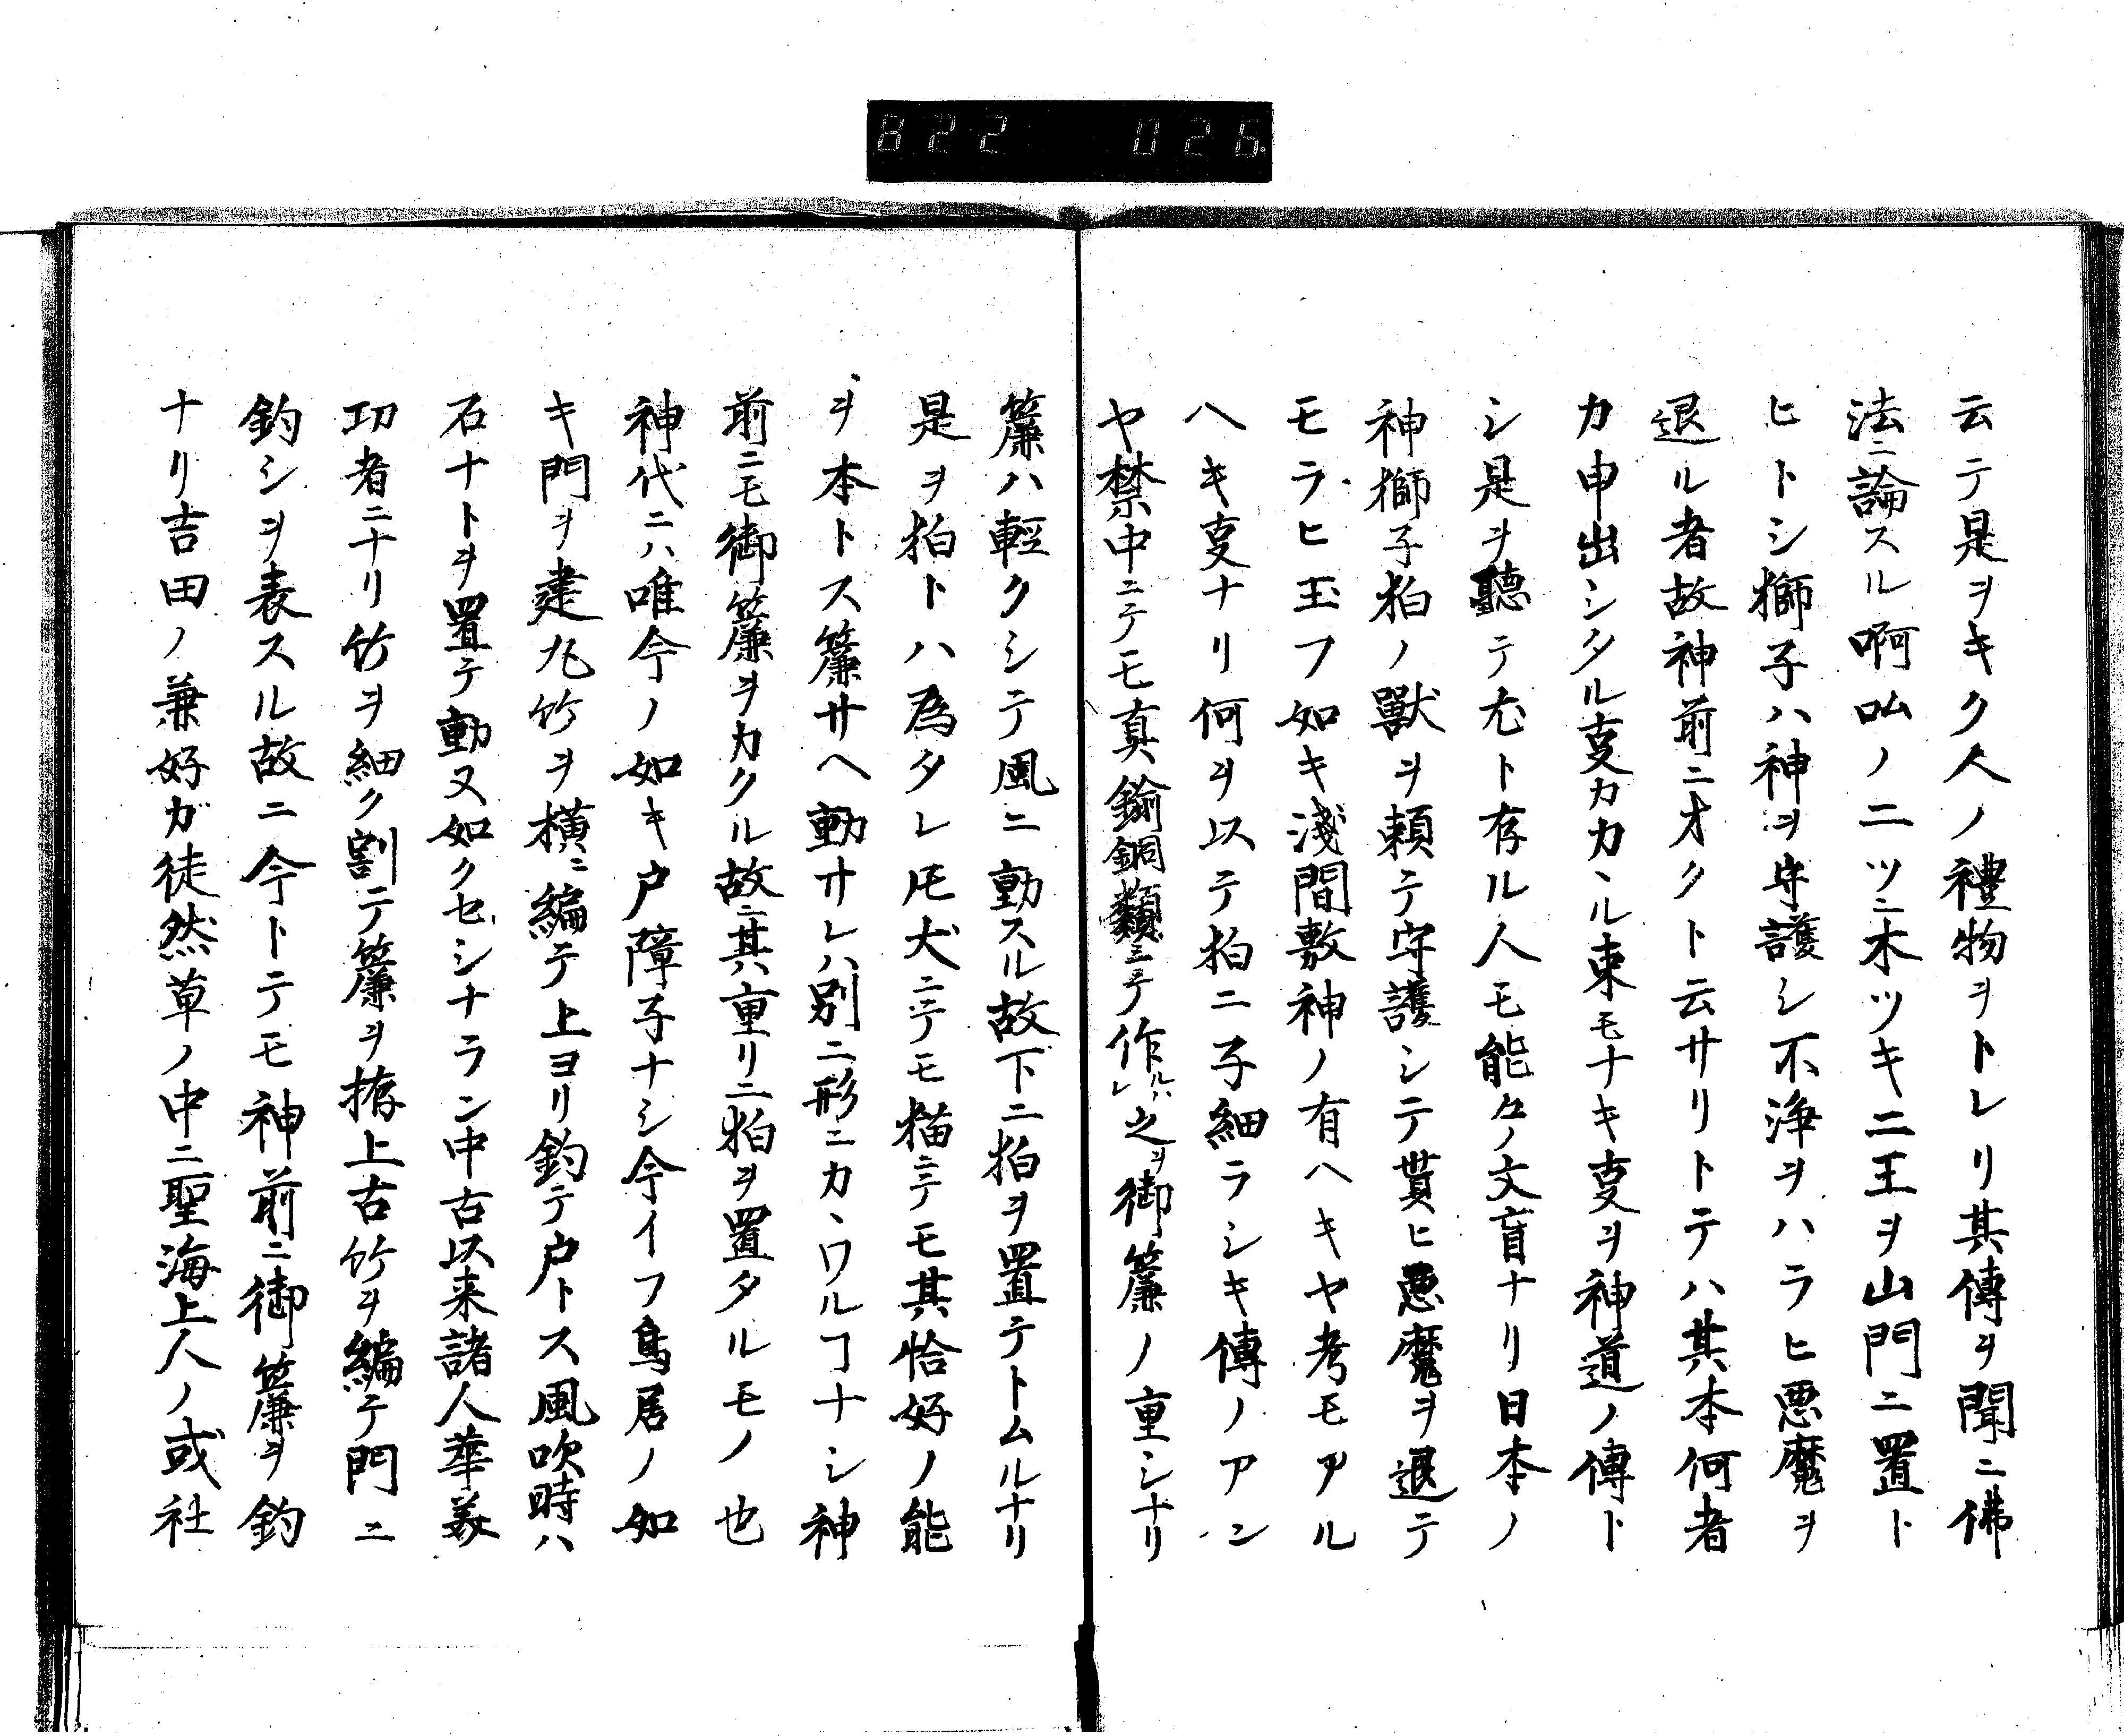 822 026
云テ是ヲキク人ノ禮物ヲトレリ其傳ヲ聞ニ佛
法ニ論スル啊吽ノ二ツニ木ツキ二王ヲ山門ニ置ト
ヒトシ獅子ハ神ヲ守護シ不浄ヲハラヒ悪魔ヲ
退ル者故神前ニオクト云サリトテハ其本何者
カ申出シタル㕝カカヽル束モナキ㕝ヲ神道ノ傳ト
シ是ヲ聽テ尤ト存ル人モ能々ノ文盲ナリ日本ノ
神獅子狛ノ獸ヲ頼テ守護シテ貰ヒ悪魔ヲ退テ
モラヒ玉フ如キ淺間敷神ノ有ヘキヤ考モアル
ヘキ㕝ナリ何ヲ以テ狛ニ子細ラシキ傳ノアン
ヤ禁中ニテモ真鍮銅類ニテ作ルハレ之ヲ御簾ノ重シナリ
簾ハ輕クシテ風ニ動スル故下ニ狛ヲ置テトムルナリ
是ヲ狛トハ為タレ𪜈犬ニテモ猫ニテモ其恰好ノ能
ヲ本トス簾サヘ動サレハ別ニ形ニカヽワルヿナシ神
前ニモ御簾ヲカクル故ニ其重リニ狛ヲ置タルモノ也
神代ニハ唯今ノ如キ戸障子ナシ今イフ鳥居ノ如
キ門ヲ建九竹ヲ横ニ編テ上ヨリ釣テ戸トス風吹時ハ
石ナトヲ置テ動又如クセシナラン中古以来諸人華美
功者ニナリ竹ヲ細ク割テ簾ヲ拵上古竹ヲ編テ門ニ
釣シヲ表スル故ニ今トテモ神前ニ御簾ヲ釣
ナリ吉田ノ兼好ガ徒然草ノ中ニ聖海上人ノ或社